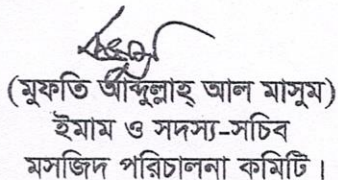 (মুফতি আব্দুল্লাহ্ আল মাসুম)
ইমাম ও সদস্য-সচিব
মসজিদ পরিচালনা কমিটি।